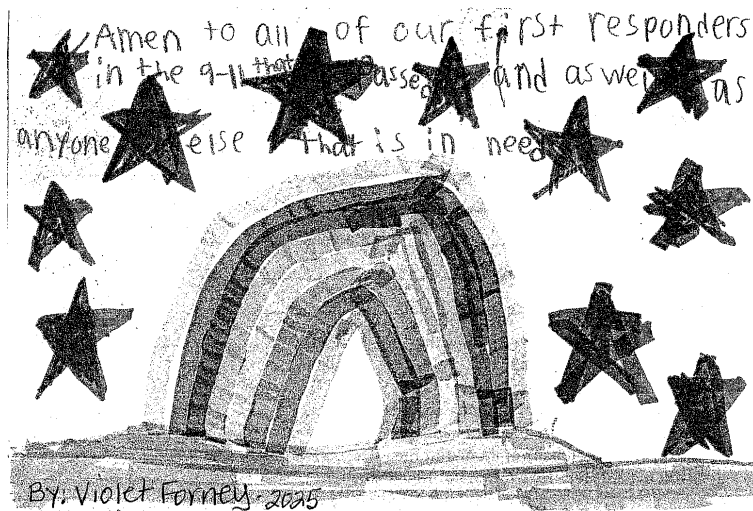 Amen to all of our first responders
in the 9-11 that Passed and as well as
anyone else that is in need
By. Violet Forney. 2025